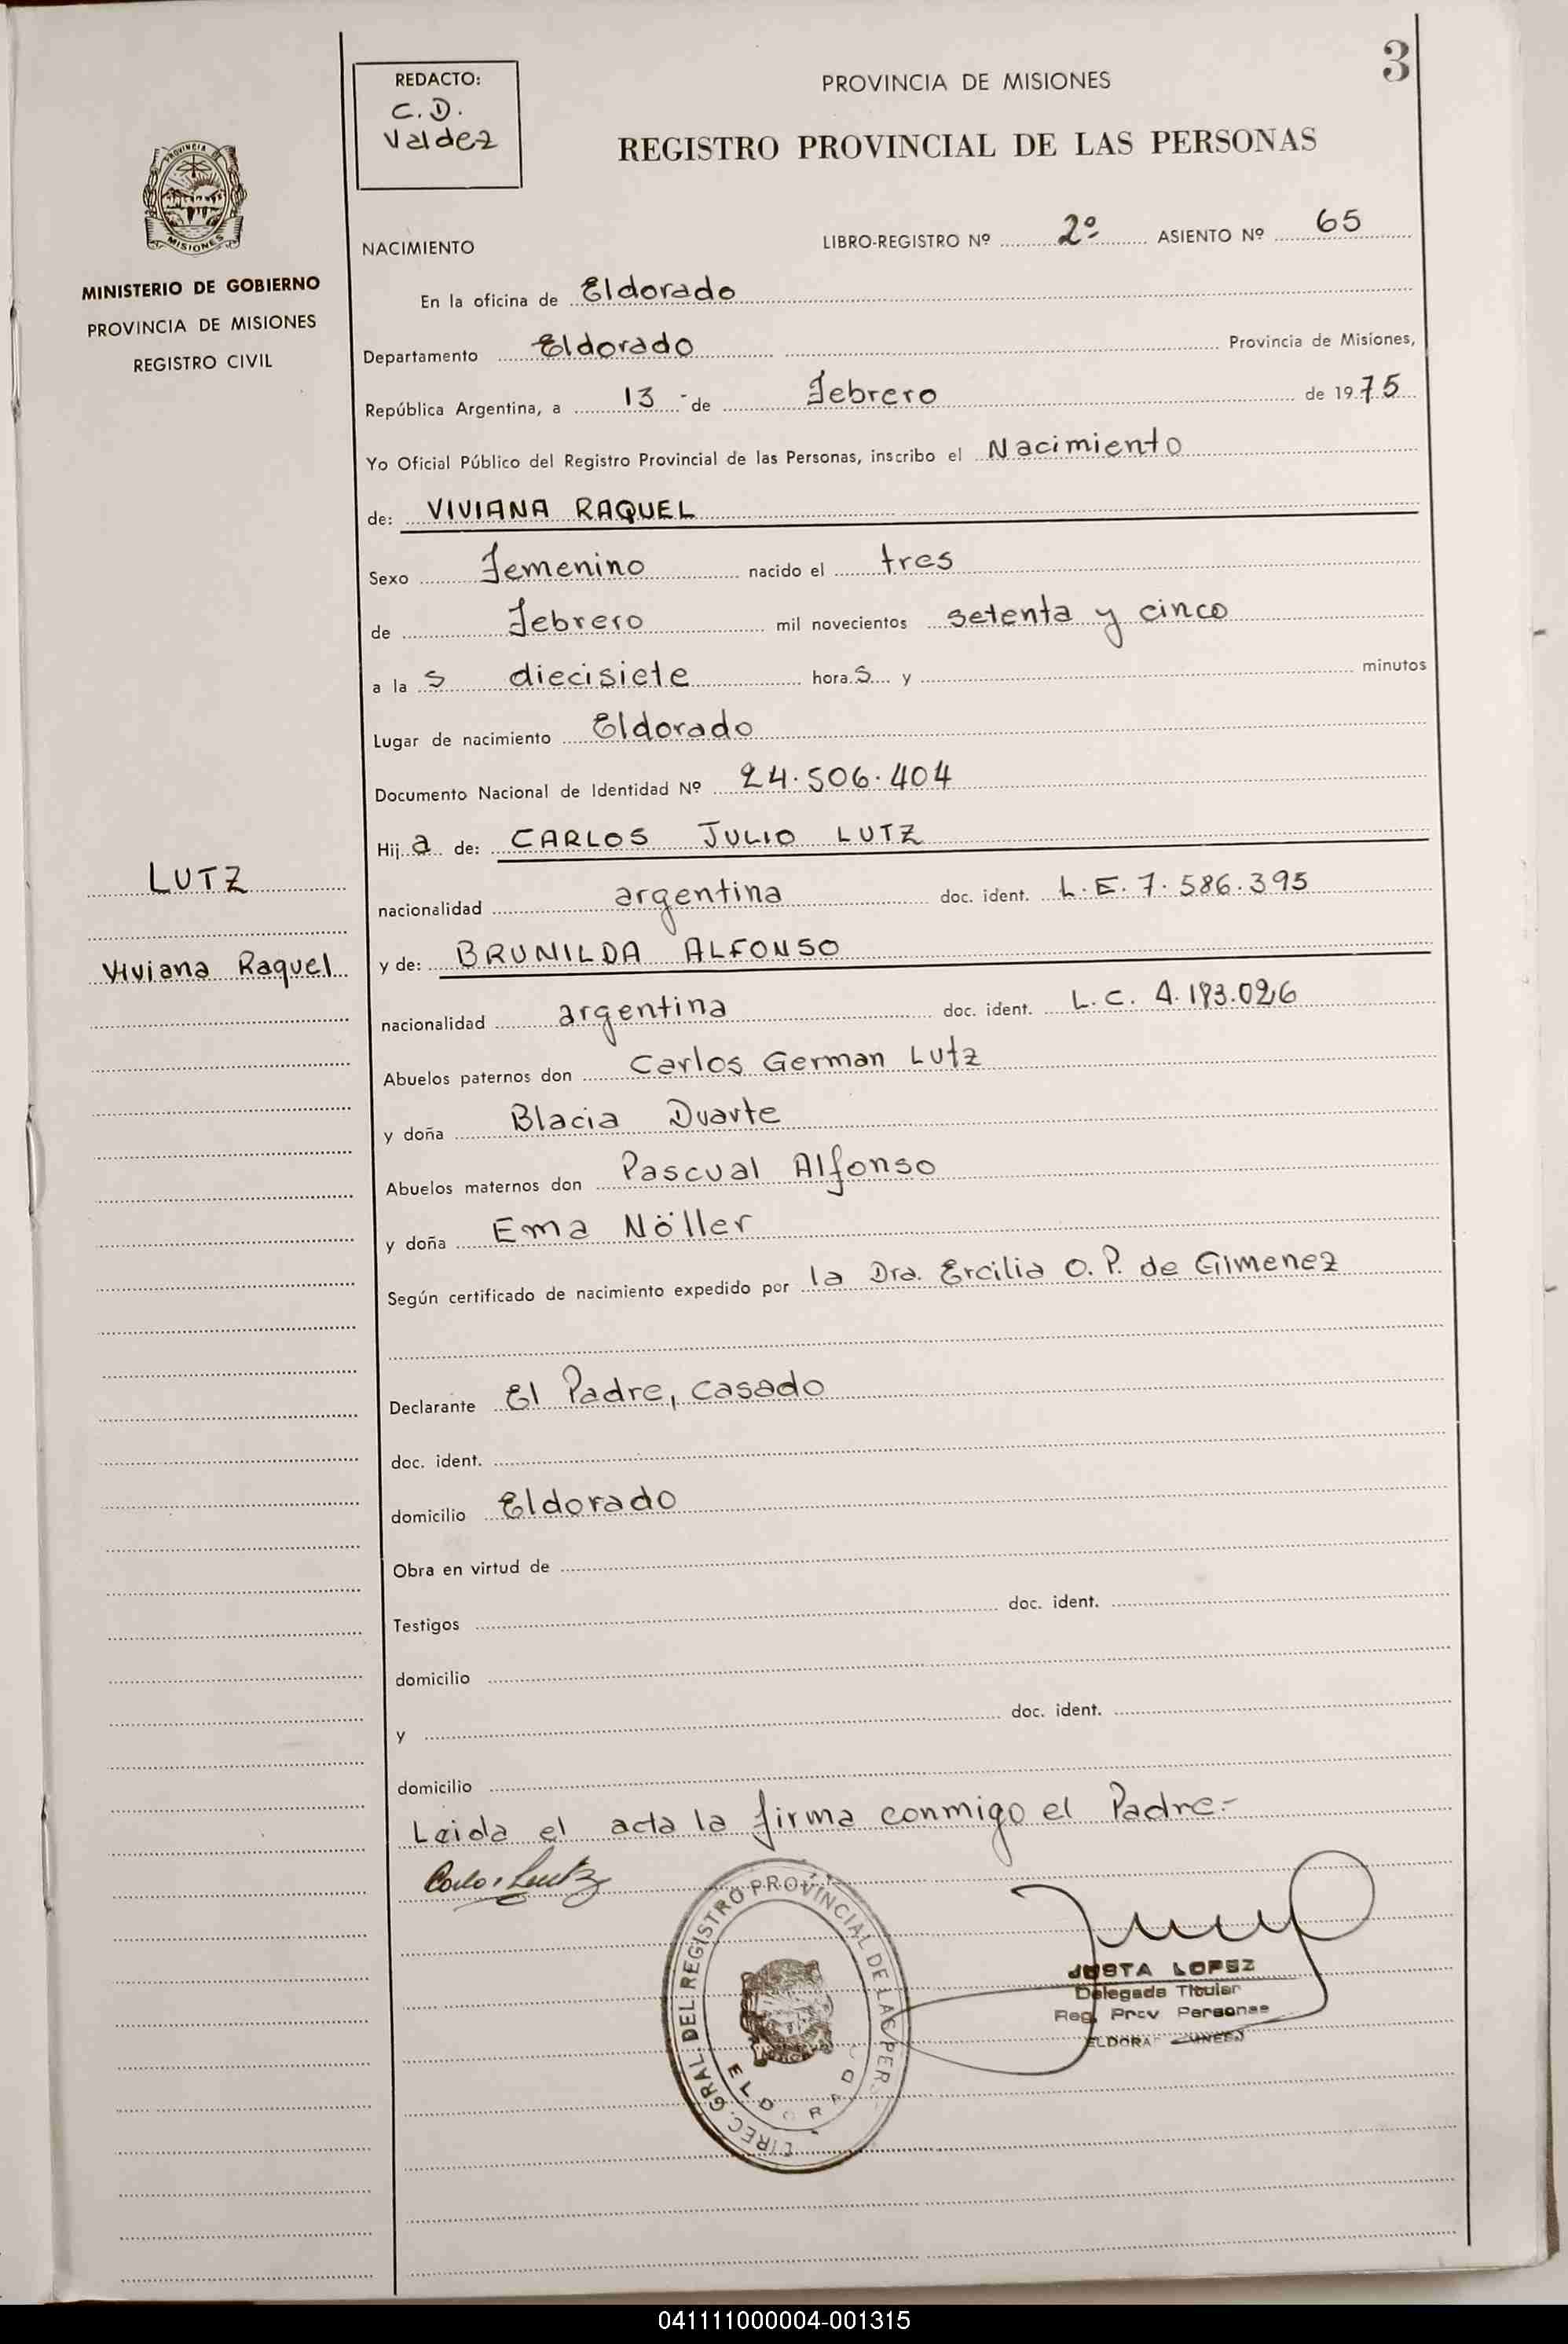 3
REDACTO:
C.D.
Valdez
PROVINCIA DE MISIONES
REGISTRO PROVINCIAL DE LAS PERSONAS
PROVINCIA DE
MISIONES
MINISTERIO DE GOBIERNO
PROVINCIA DE MISIONES
REGISTRO CIVIL
NACIMIENTO
LIBRO-REGISTRO Nº 2º ASIENTO Nº 65
En la oficina de Eldorado
Departamento Eldorado Provincia de Misiones,
República Argentina, a 13 - de Febrero de 1975
Yo Oficial Público del Registro Provincial de las Personas, inscribo el Nacimiento
de: VIVIANA RAQUEL
Sexo Femenino nacido el tres
de Febrero mil novecientos setenta y cinco
a la s diecisiete hora s y minutos
Lugar de nacimiento Eldorado
Documento Nacional de Identidad Nº 24.506.404
Hij a de: CARLOS JULIO LUTZ
LUTZ
nacionalidad argentina doc. ident. L.E. 7.586.395
Viviana Raquel
y de: BRUNILDA ALFONSO
nacionalidad argentina doc. ident. L.C. 4.193.026
Abuelos paternos don Carlos German Lutz
y doña Blacia Duarte
Abuelos maternos don Pascual Alfonso
y doña Ema Nöller
Según certificado de nacimiento expedido por la Dra. Ercilia O. P. de Gimenez
Declarante El Padre, casado
doc. ident.
domicilio Eldorado
Obra en virtud de
Testigos doc. ident.
domicilio
y doc. ident.
domicilio
Leida el acta la firma conmigo el Padre.-
Carlos Lutz
DIREC. GRAL. DEL REGISTRO PROVINCIAL DE LAS PER.
ELDORADO
JUSTA LOPEZ
Delegada Titular
Reg. Prov Personas
041111000004-001315